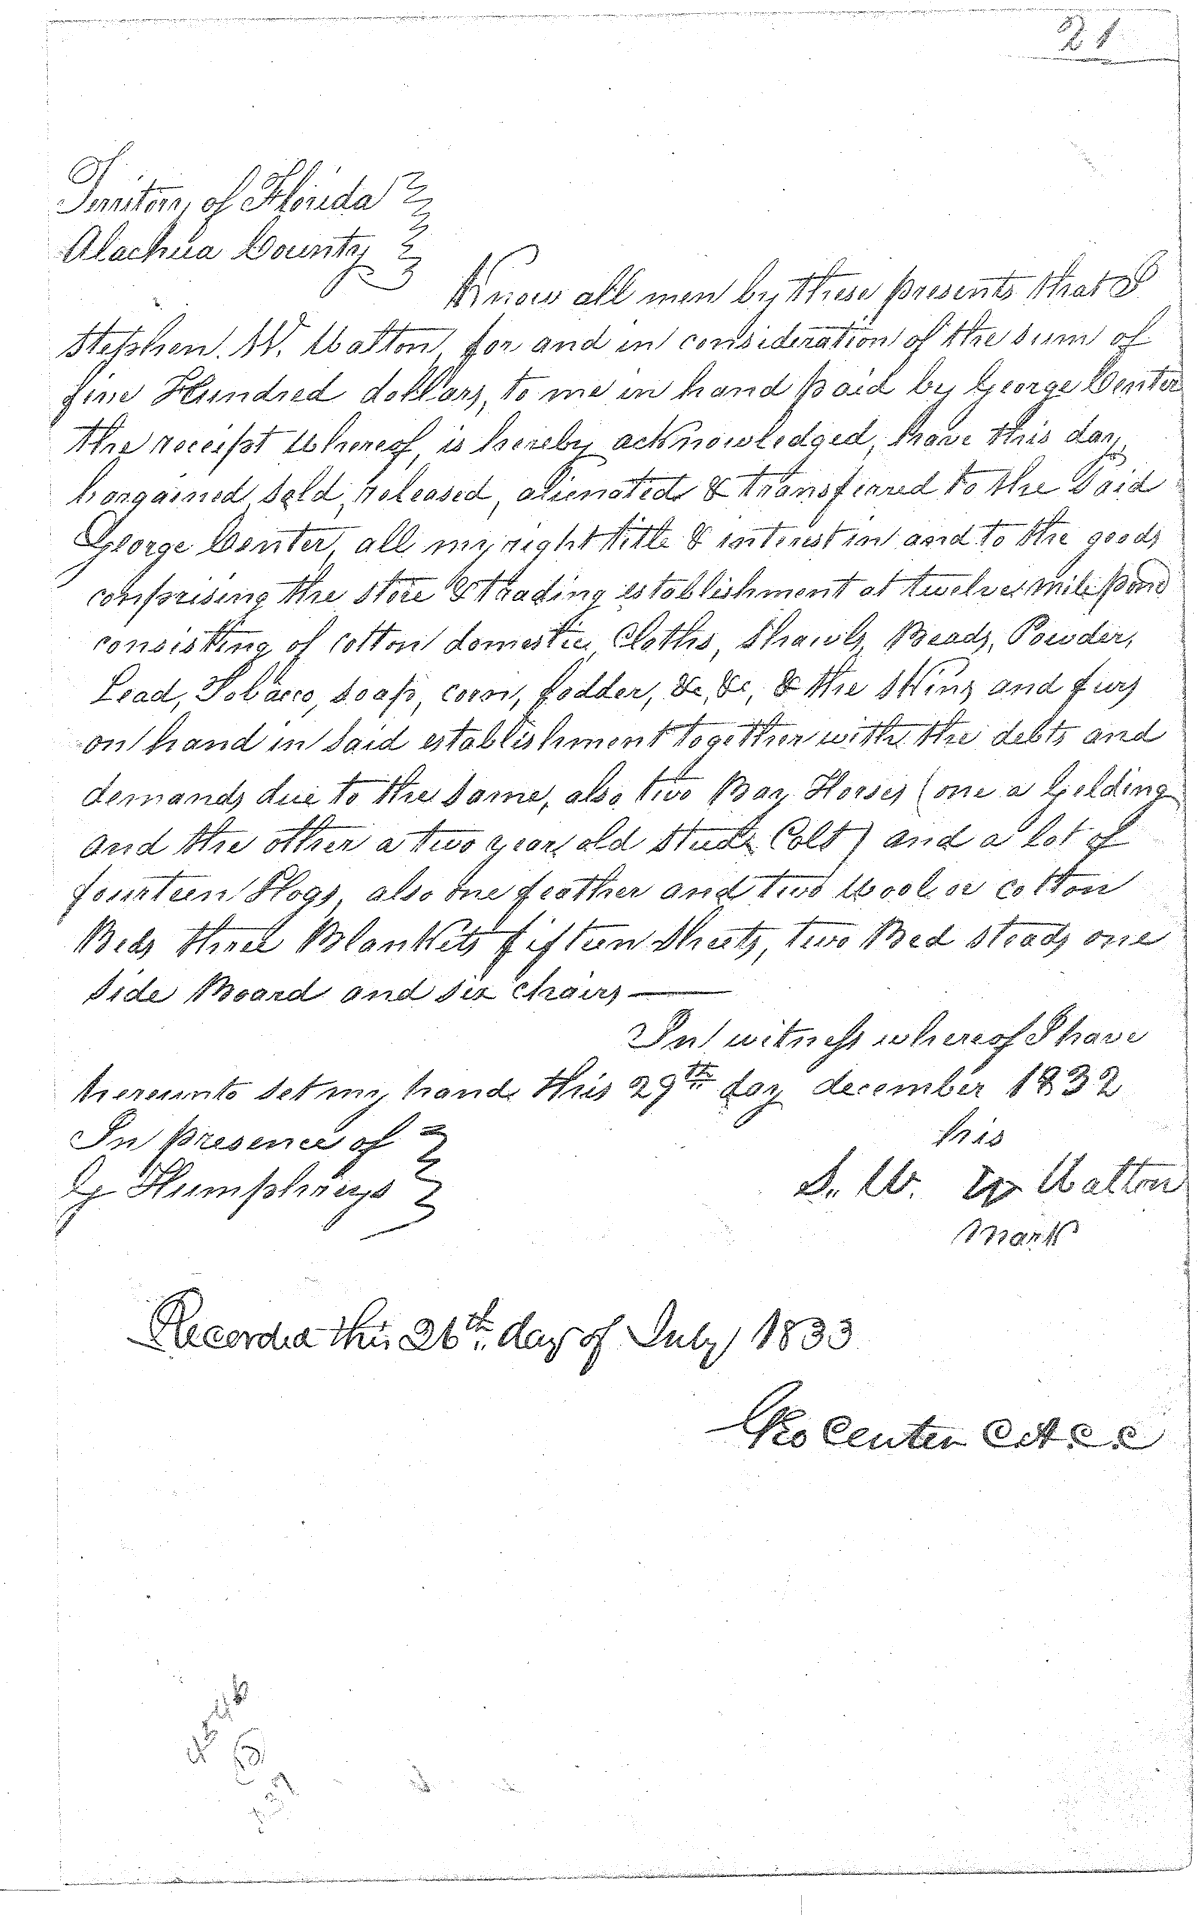 21
Territory of Florida
Alachua County
Know all men by these presents that I
Stephen. W. Walton, for and in consideration of the sum of
five Hundred dollars, to me in hand paid by George Center
the receipt whereof, is hereby acknowledged, have this day
bargained, sold, released, alienated & transferred to the Said
George Center, all my right title & interest in and to the goods
comprising the store & trading establishment at twelve mile pond
consisting of cotton domestic, Cloths, Shawls, Beads, Powder,
Lead, Tobacco, soap, corn, fodder, &c, &c, & the skins and furs
on hand in said establishment together with the debts and
demands due to the same, also two Bay Horses (one a Gelding
and the other a two year old stud Colt) and a lot of
fourteen Hogs, also one feather and two wool or cotton
Beds three Blankets fifteen Sheets, two Bed steads one
Side Board and six chairs
In witness whereof I have
hereunto set my hand this 29th day december 1832
In presence of
his
G Humphreys
S. W. Walton
mark
Recorded this 26th day of July 1833
Geo Center C.A.C.C